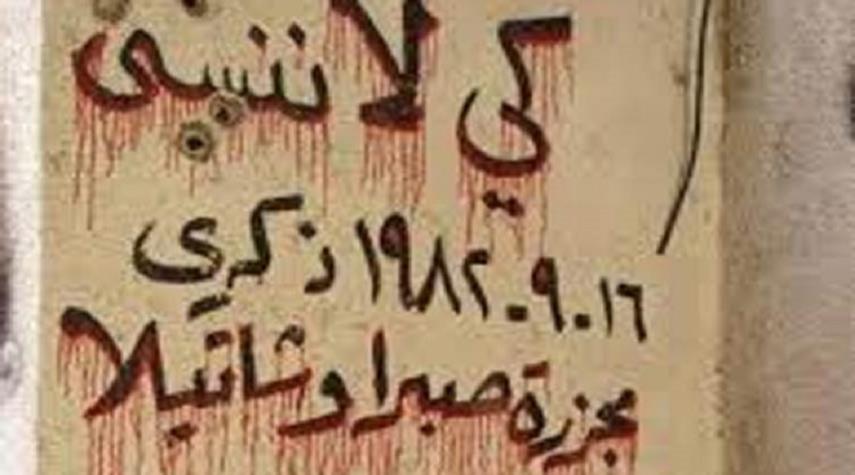 كي لا ننسى
١٦-٩-١٩٨٢ ذكرى
مجزرة صبرا وشاتيلا